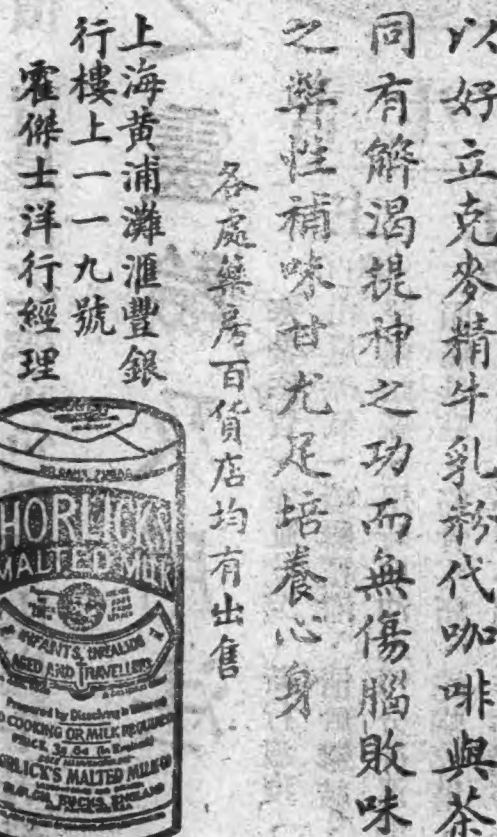 以好立克麥精牛乳粉代咖啡與茶
同有解渴提神之功而無傷腦敗味
之弊性補味甘尤足培養心身
各處藥房百貨店均有出售
上海黃浦灘滙豐銀
行樓上一一九號
霍傑士洋行經理
HORLICK'S
MALTED MILK
INFANTS, INVALIDS
AGED AND TRAVELLERS
Prepared by Dissolving in Water
NO COOKING OR MILK REQUIRED
PRICE, 3s 6d (in England)
HORLICK'S MALTED MILK CO
SLOUGH, BUCKS, ENGLAND